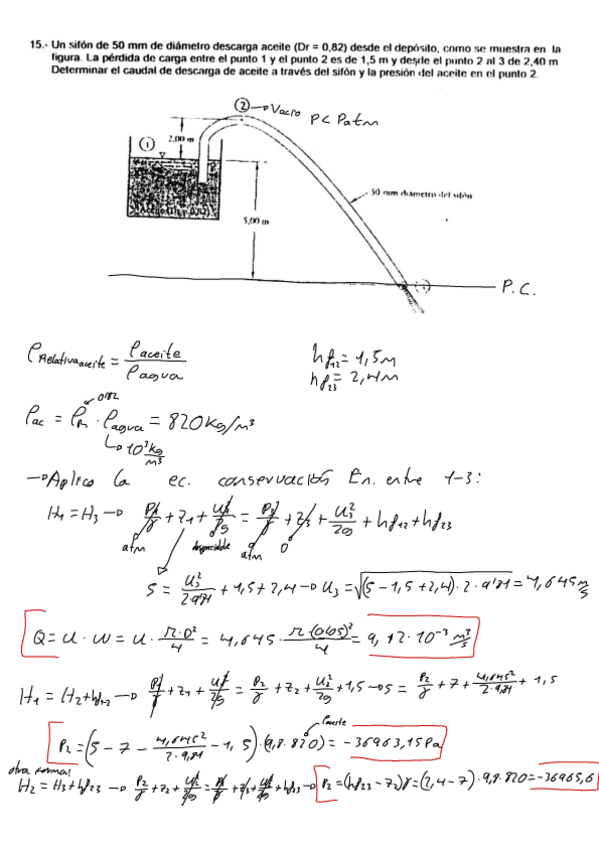 15.- Un sifón de 50 mm de diámetro descarga aceite (Dr = 0,82) desde el depósito, como se muestra en la
figura. La pérdida de carga entre el punto 1 y el punto 2 es de 1,5 m y desde el punto 2 al 3 de 2,40 m
Determinar el caudal de descarga de aceite a través del sifón y la presión del aceite en el punto 2.
② → Vacío P < Patm
①
2,00 m
50 mm diámetro del sifón
5,00 m
P.C.
ρRelativa aceite = ρaceite / ρagua
hf12 = 1,5m
hf23 = 2,4m
0,82
ρac = ρR · ρagua = 820 kg/m³
10³ kg/m³
→ Aplico la ec. conservación En. entre 1-3:
H1 = H3 → P1/γ + z1 + U1²/2g = P3/γ + z3 + U3²/2g + hf12 + hf23
atm despreciable atm 0
5 = U3²/2·9'81 + 1,5 + 2,4 → U3 = √(5 - 1,5 + 2,4)·2·9'81 = 4,645 m/s
Q = U · W = U · π·D²/4 = 4,645 · π(0,05)²/4 = 9,12·10⁻³ m³/s
H1 = H2 + hf12 → P1/γ + z1 + U1²/2g = P2/γ + z2 + U2²/2g + 1,5 → 5 = P2/γ + 7 + 4,645²/2·9,81 + 1,5
P2 = (5 - 7 - 4,645²/2·9,81 - 1,5)·(9,8·820) = -36963,15 Pa
otra forma!
H2 = H3 + hf23 → P2/γ + z2 + U2²/2g = P3/γ + z3 + U3²/2g + hf23 → P2 = (hf23 - z2)γ = (2,4 - 7)·9,8·820 = -36965,6